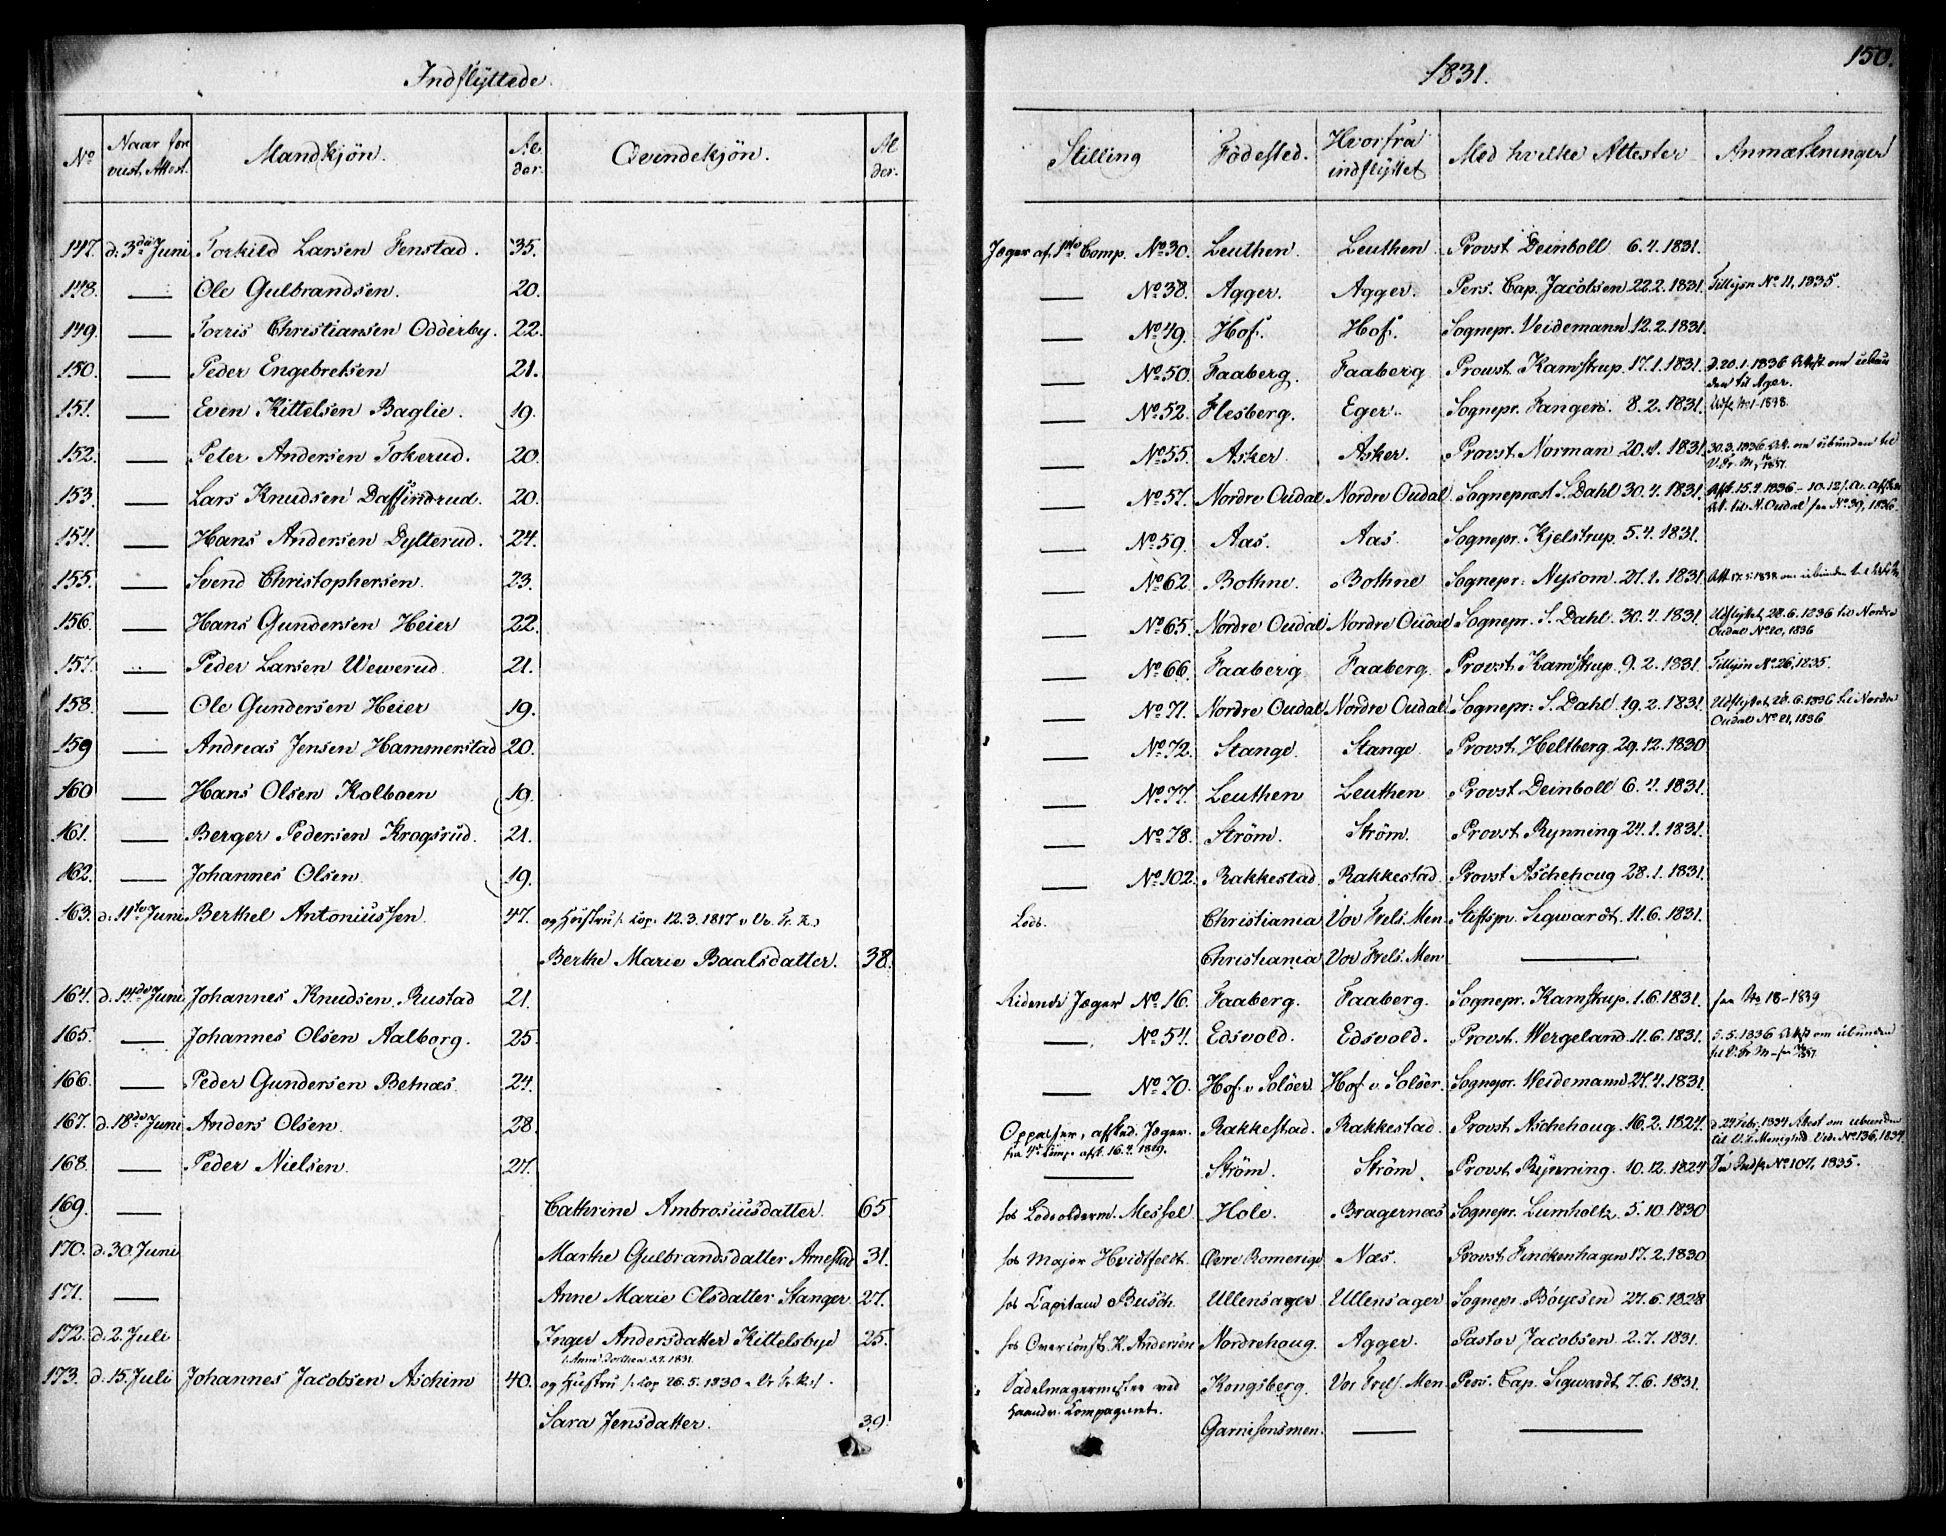 Indflyttede. 1831. 150.
No Naar fore vist. Attest. Mandkjön. Al der. Qvindekjön. Al der. Stilling Födested. Hvorfra indflyttet Med hvilke Attester Anmærkninger
147. d. 3die Juni Torkild Larsen Fenstad. 35. Jæger af 1ste Comp. No 30. Leuthen. Leuthen Provst Deinboll 6.4.1831.
148. — Ole Gulbrandsen. 20. — No 38. Agger. Agger. Pers. Cap. Jacobsen 22.2.1831. Tillysn No 11, 1835.
149. — Torris Christiansen Odderby. 22. — No 49. Hof. Hof. Sognepr. Veidemann 12.2.1831.
150. — Peder Engebretsen 21. — No 50. Faaberg. Faaberg Provst. Kamstrup. 17.1.1831. d. 20.1.1836 Attest om ubun
den til Ager.
151. — Even Kittelsen Baglie. 19. — No 52. Flesberg. Eger. Sognepr. Fangen. 8.2.1831.
152. — Peter Andersen Tokerud. 20. — No 55. Asker. Asker. Provst Norman 20.4.1831. 30.3.1836 Att. om ubunden til
153. — Lars Knudsen Daffindrud. 20. — No 57. Nordre Oudal Nordre Oudal Sognepræst S. Dahl 30.4.1831.
til N. Oudal No 39, 1836.
154. — Hans Andersen Dytterud. 24. — No 59. Aas. Aas. Sognepr. Kjelstrup. 5.4.1831.
155. — Svend Christophersen. 23. — No 62. Bothne. Bothne Sognepr: Nysom. 27.1.1831.
156. — Hans Gundersen Heier 22. — No 65. Nordre Oudal Nordre Oudal Sognepr. S. Dahl. 30.4.1831. Udflyttet 28.6.1836 til Nordre
Oudal No 20, 1836
157. — Peder Larsen Wewerud. 21. — No 66. Faaberg Faaberg. Provst. Kamstrup. 9.2.1831. Tillysn No 26, 1835.
158. — Ole Gundersen Heier 19. — No 71. Nordre Oudal Nordre Oudal. Sognepr: S. Dahl. 19.2.1831. Udflyttet 28.6.1836 til Nordre
Oudal No 21, 1836
159 — Andreas Jensen Hammerstad 20. — No 72. Stange Stange Provst. Heltberg. 29.12.1830
160 — Hans Olsen Kolboen 19. — No 77. Leuthen Leuthen Provst Deinboll 6.4.1831.
161. — Berger Pedersen Krogsrud. 21. — No 78. Ström. Ström. Provst. Rynning 24.1.1831.
162. — Johannes Olsen. 19. — No 102. Rakkestad. Rakkestad. Provst Aschehoug 28.1.1831.
163. d. 11te Juni Berthel Antoniussen. 47. og Hustru /: Cop. 12.3.1817 Lods. Christiania Vor Frels. Men. Stiftspr. Sigwardt. 11.6.1831.
Berthe Marie Baalsdatter. 38. Christiania Vor Frels. Men —
164. d. 14de Juni Johannes Knudsen Rustad 21. Ridende Jæger No 16. Faaberg. Faaberg. Sognepr. Kamstrup. 1.6.1831. No 18-1839
165. — Johannes Olsen Aalborg. 25. — No 54. Edsvold. Edsvold. Provst. Wergeland. 11.6.1831. 5.5.1836 Attest om ubunden
166. — Peder Gundersen Betnæs. 24. — No 70. Hof v. Solöer. Hof v. Solöer. Sognepr. Weidemann 27.4.1831.
167. d. 18de Juni Anders Olsen 28. Oppasser, afsked. Jæger. Rakkestad. Rakkestad. Provst. Aschehoug. 16.2.1824. d. 24 Febr. 1834 Attest om ubunden
fra 4de Comp. afsk. 16.4.1829. til V. F. Menighed. Vid. No 136, 1834.
168. — Peder Nielsen. 27. — Ström. Ström. Provst Rynning. 10.12.1824 No 107, 1835.
169. — Cathrine Ambrosiusdatter. 65. hos Lodsolderm. Messel Hole. Bragernæs Sognepr. Lumholtz. 5.10.1830
170. d. 30. Juni Marthe Gulbrandsdatter Arnestad 31. hos Major Hvidtfeldt. Övre Romerige Næs. Provst. Finckenhagen 17.2.1830
171. — Anne Marie Olsdatter Stanger 27. hos Capitain Busch. Ullensager Ullensager Sognepr. Böyesen 27.6.1828
172. d. 2. Juli Inger Andersdatter Kittelsbye 25. hos K. Andersen Nordrehoug. Agger. Pastor Jacobsen 2.7.1831.
173. d. 15. Juli Johannes Jacobsen Aschim 40. og Hustru /: Cop 26.5.1830 Sadelmagermester ved Kongsberg. Vor Frels. Men. Pers. Cap. Sigwardt 7.6.1831.
Sara Jensdatter. 39. haandv. Compagniet. Garnisonsmen. — —